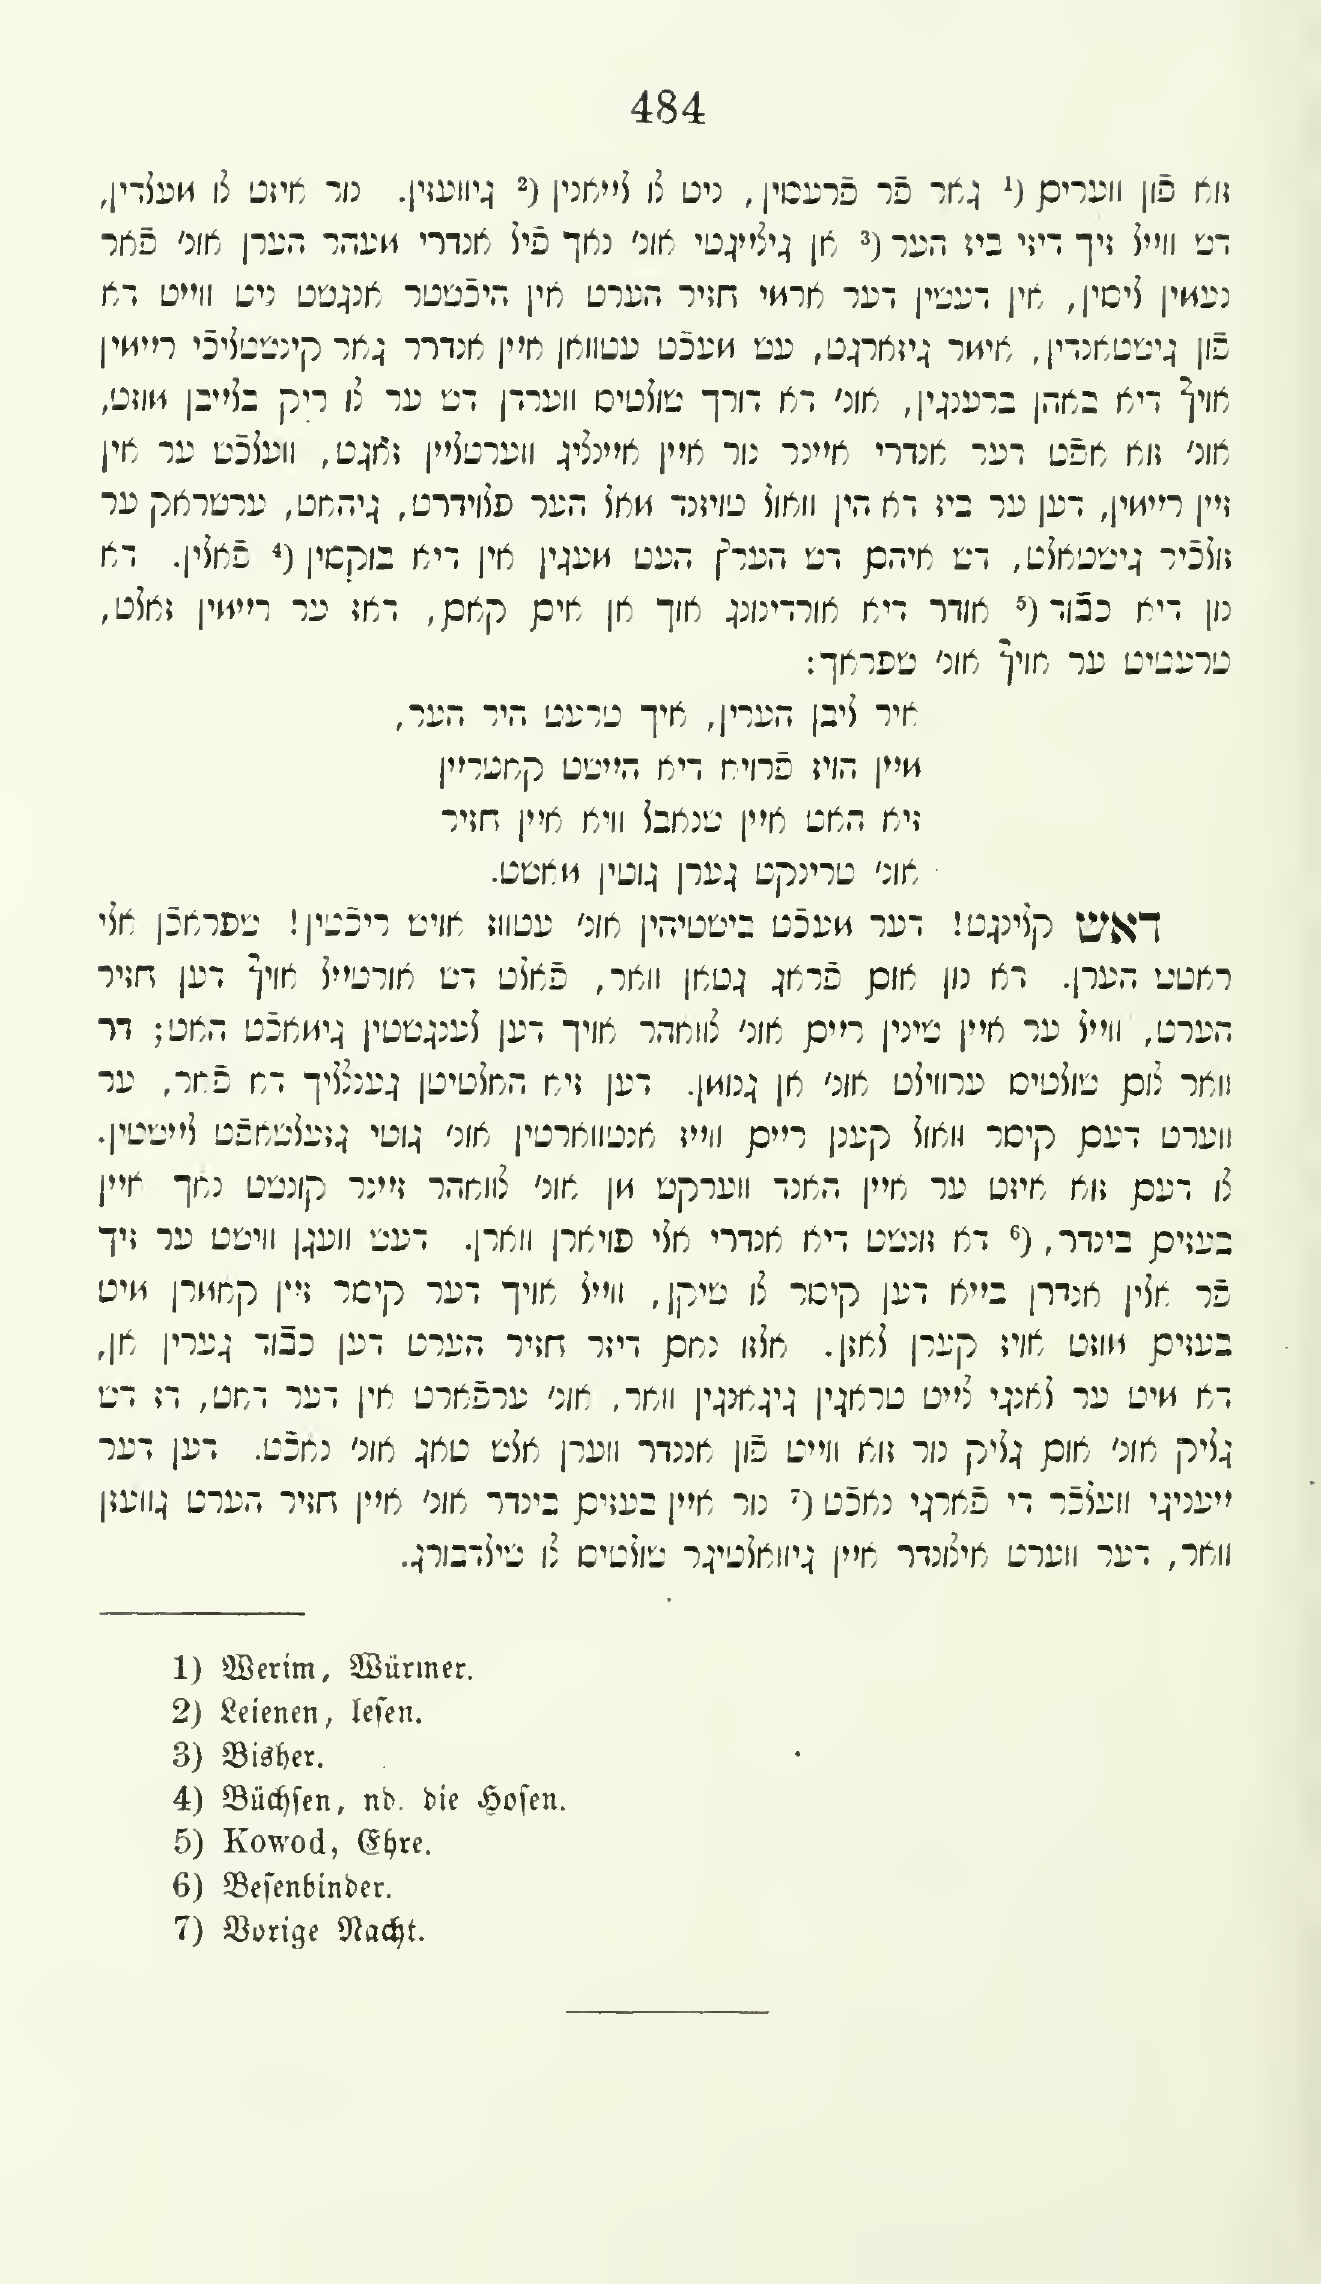 484
זוא פֿון ווערים (¹ גאר פר פרעסין, ניט צו לייאנין (² גיוועזין. נור איזט צו מעלדין,
דש ווייל זיך דיזי ביז הער (³ אן גיצייגטי אונ' נאך פֿיל אנדרי מעהר הערן אונ' פֿאר
נעמין ליסין, אין דעשין דער ארמי חזיר הערט אין היכֿשטר אנגשט ניט ווייט דא
פֿון גישטאנדין, אימר גיזארגט, עש מעכֿט עטוואן איין אנדרר גאר קינשטליכֿי ריימין
אויף דיא באהן ברענגין, אונ' דא דורך שולטיס ווערדן דש ער צו ריק בלייבן מוזט,
אונ' זוא אפֿט דער אנדרי איינר נור איין איינציג ווערטליין זאגט, וועלכֿש ער אין
זיין ריימין, דען ער ביז דא הין וואול טויזנד מאל הער פלוידרט, גיהאט, ערטראק ער
זולכֿיר גישטאלט, דש איהם דש הערץ העט מעגין אין דיא בוקסין (⁴ פֿאלין. דא
נון דיא כבֿוד (⁵ אודר דיא אורדינונג אוך אן אים קאם, דאז ער ריימין זאלט,
טרעטיט ער אויף אונ' שפראך:
איר ליבן הערין, איך טרעט היר הער,
מיין הויז פֿרויא דיא היישט קאטריין
זיא האט איין שנאבל וויא איין חזיר
אונ' טרינקט גערן גוטין מאשט.
דאש קלינגט! דער מעכֿט בישטיהין אונ' עטווז אויש ריכֿטין! שפראכֿן אלי
ראטש הערן. דא נון אום פֿראג גטאן וואר, פֿאלט דש אורטייל אויף דען חזיר
הערט, ווייל ער איין שינין ריים אונ' צוואהר אויך דען לענגשטין גימאכֿט האט; דר
וואר צום שולטיס ערווילט אונ' אן גנומן. דען זיא האלטיטן גענצליך דא פֿאר, ער
ווערט דעם קיסר וואול קענן ריים ווייז אנטווארטין אונ' גוטי גזעלשאפֿט ליישטין.
צו דעם זוא איזט ער איין האנד ווערקש מן אונ' צוואהר זיינר קונשט נאך איין
בעזים בינדר, (⁶ דא זונשט דיא אנדרי אלי פויארן ווארן. דעש וועגן ווישט ער זיך
פֿר אלין אנדרן בייא דען קיסר צו שיקן, ווייל אויך דער קיסר זיין קאמרן מיט
בעזים מוזט אויז קערן לאזן. אלזו נאם דיזר חזיר הערט דען כבֿוד גערין אן,
דא מיט ער לאנגי צייט טראגין גיגאנגין וואר, אונ' ערפֿארט אין דער דאט, דז דש
גליק אונ' אום גליק נור זוא ווייט פֿון אננדר ווערן אלש טאג אונ' נאכֿט. דען דער
ייעניגי וועלכֿר די פֿארגי נאכֿט (⁷ נור איין בעזים בינדר אונ' איין חזיר הערט גוועזן
וואר, דער ווערט איצונדר איין גיוואלטיגר שולטיס צו שילדבורג.
1) Werim, Würmer.
2) Leienen, lesen.
3) Bisher.
4) Büchsen, nd. die Hosen.
5) Kowod, Ehre.
6) Besenbinder.
7) Vorige Nacht.